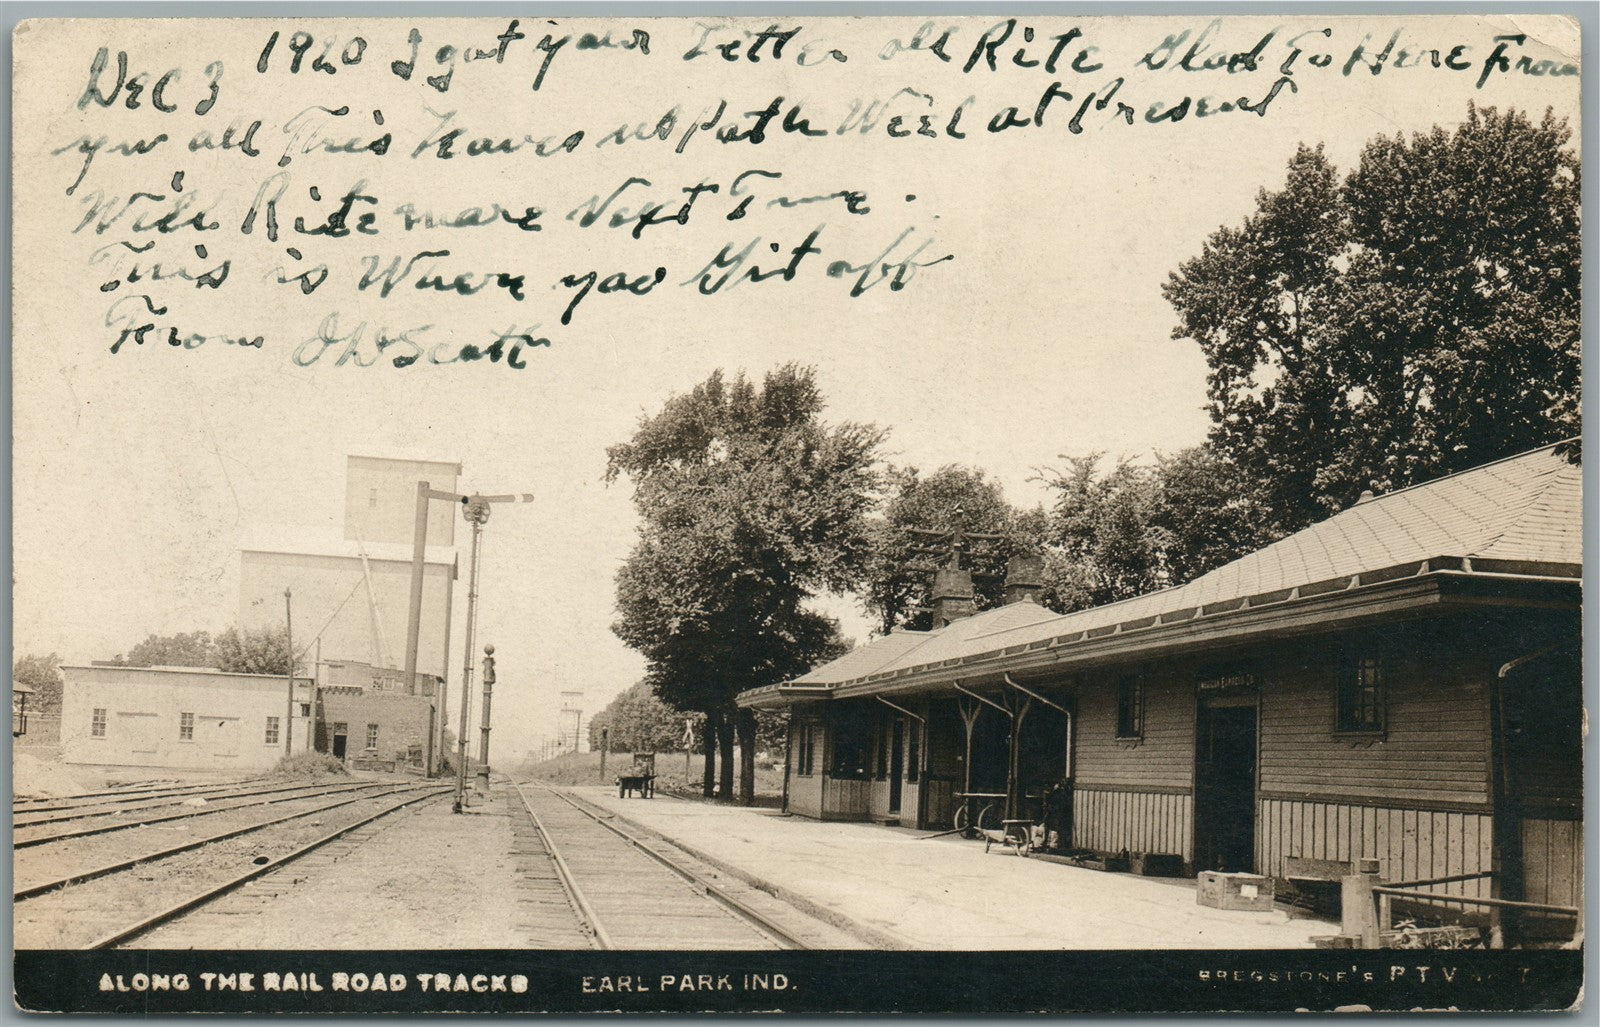 Dec 3 1920 I got your Letter all Rite Glad To Here From
you all This Leaves us Both Well at Present
Will Rite more Next Time.
This is Where you Git off
From J W Scott
Express Co.
ALONG THE RAIL ROAD TRACKS EARL PARK IND. BREGSTONE'S P T V